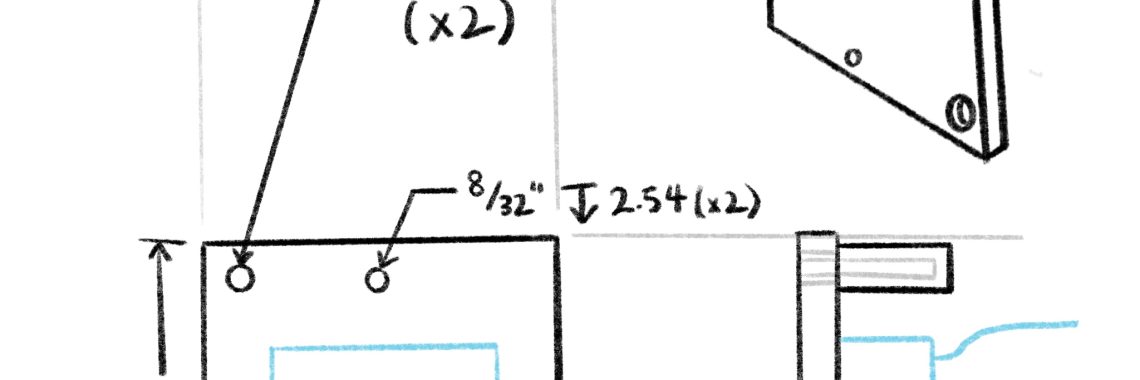 (x2)
8/32" ↧ 2.54 (x2)